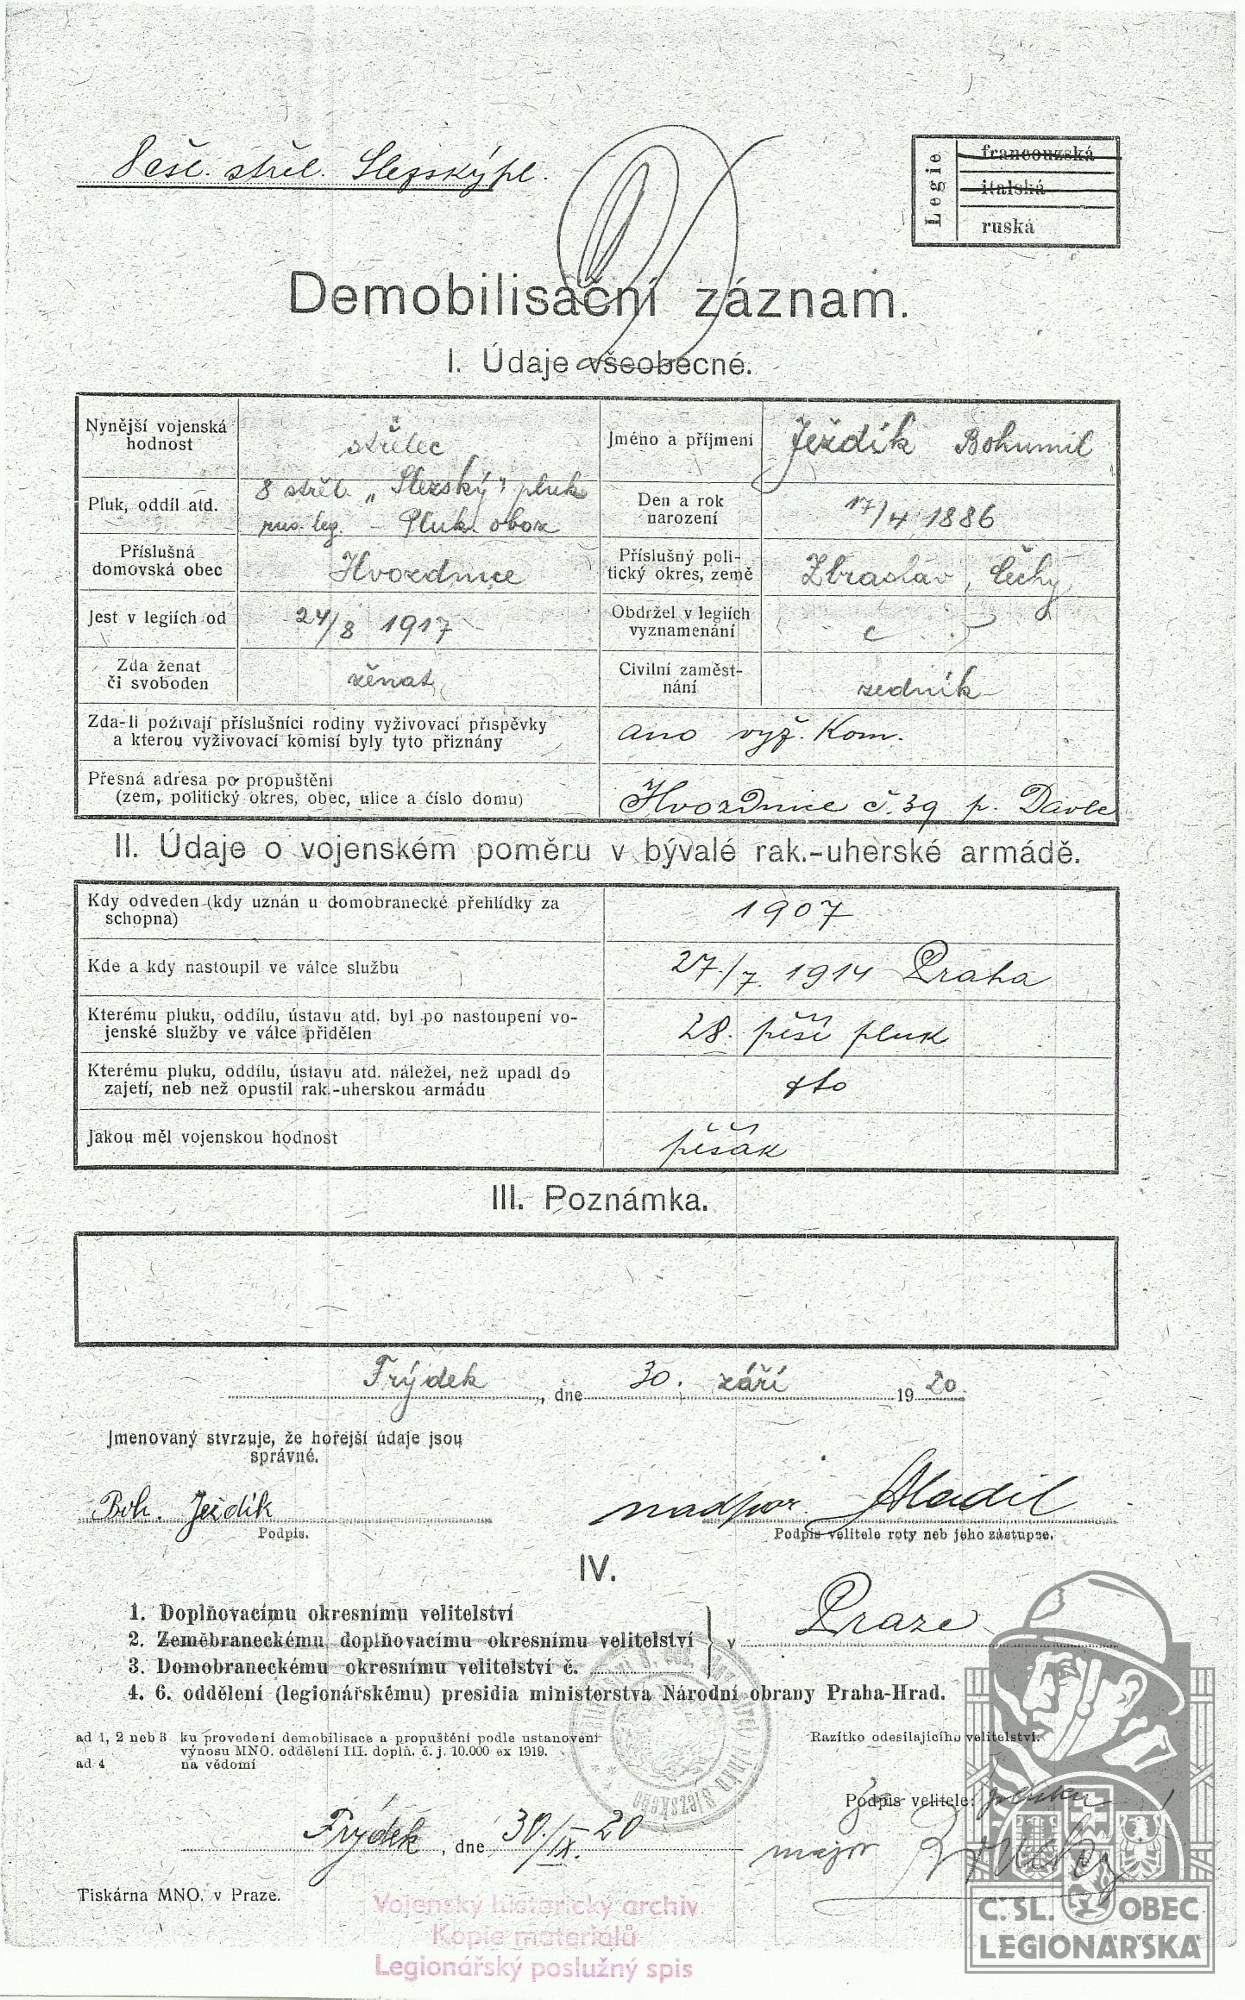 8 čsl. střel. Slezský pl.
Legie
francouzská
italská
ruská
Demobilisační záznam.
I. Údaje všeobecné.
Nynější vojenská hodnost
střelec
Jméno a příjmení
Ježdík Bohumil
Pluk, oddíl atd.
8 střel. „Slezský" pluk
rus. leg. – Pluk. oboz
Den a rok narození
17/4 1886
Příslušná domovská obec
Hvozdnice
Příslušný politický okres, země
Zbraslav, Čechy
Jest v legiích od
24/8 1917
Obdržel v legiích vyznamenání
Zda ženat či svoboden
ženat
Civilní zaměstnání
zedník
Zda-li požívají příslušníci rodiny vyživovací příspěvky
a kterou vyživovací komisí byly tyto přiznány
ano vyž. Kom.
Přesná adresa po propuštění
(zem, politický okres, obec, ulice a číslo domu)
Hvozdnice č. 39 p. Davle
II. Údaje o vojenském poměru v bývalé rak.-uherské armádě.
Kdy odveden (kdy uznán u domobranecké přehlídky za
schopna)
1907
Kde a kdy nastoupil ve válce službu
27./7. 1914 Praha
Kterému pluku, oddílu, ústavu atd. byl po nastoupení vo-
jenské služby ve válce přidělen
28. pěší pluk
Kterému pluku, oddílu, ústavu atd. náležel, než upadl do
zajetí, neb než opustil rak.-uherskou armádu
dto
Jakou měl vojenskou hodnost
pěšák
III. Poznámka.
Frýdek, dne 30. září 1920
Jmenovaný stvrzuje, že hořejší údaje jsou
správné.
Boh. Ježdík
nadpor. Hladil
Podpis.
Podpis velitele roty neb jeho zástupce.
IV.
1. Doplňovacímu okresnímu velitelství
2. Zeměbraneckému doplňovacímu okresnímu velitelství
3. Domobraneckému okresnímu velitelství č.
v Praze
4. 6. oddělení (legionářskému) presidia ministerstva Národní obrany Praha-Hrad.
ad 1, 2 neb 3 ku provedení demobilisace a propuštění podle ustanovení
výnosu MNO. oddělení III. doplň. č. j. 10.000 ex 1919.
ad 4 na vědomí
Razítko odesílajícího velitelství.
Podpis velitele: pluku
Frýdek, dne 30./IX. 20
major
Tiskárna MNO. v Praze.
Vojenský historický archiv
Kopie materiálů
Legionářský poslužný spis
Č. SL. OBEC
LEGIONÁŘSKÁ